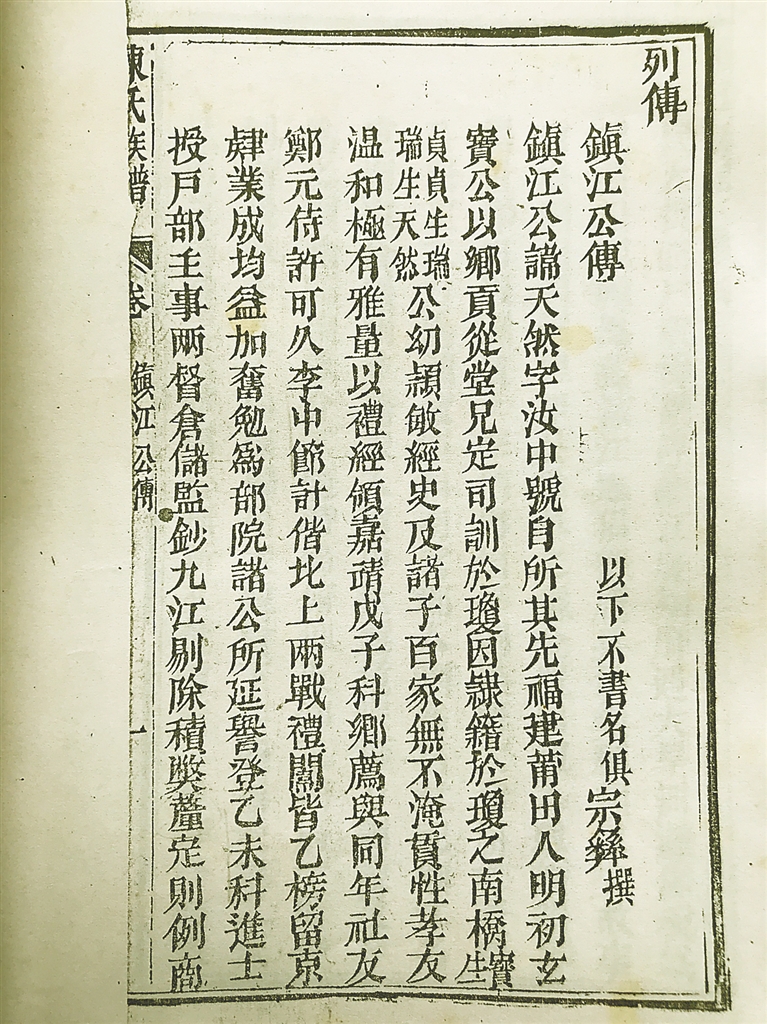 列傳
鎮江公傳
以下不書名俱宗彝撰
鎮江公諱天然字汝中號自所其先福建莆田人明初玄
寶公以鄉貢從堂兄定司訓於瓊因隸籍於瓊之南橋寶生
貞貞生瑞瑞生天然公幼穎敏經史及諸子百家無不淹貫性孝友
温和極有雅量以禮經領嘉靖戊子科鄉薦與同年社友
鄭元侍許可久李中節計偕北上兩戰禮闈皆乙榜留京
肄業成均益加奮勉爲部院諸公所延譽登乙未科進士
授戶部主事兩督倉儲監鈔九江剔除積獘釐定則例商
陳氏族譜
卷
鎮江公傳
一